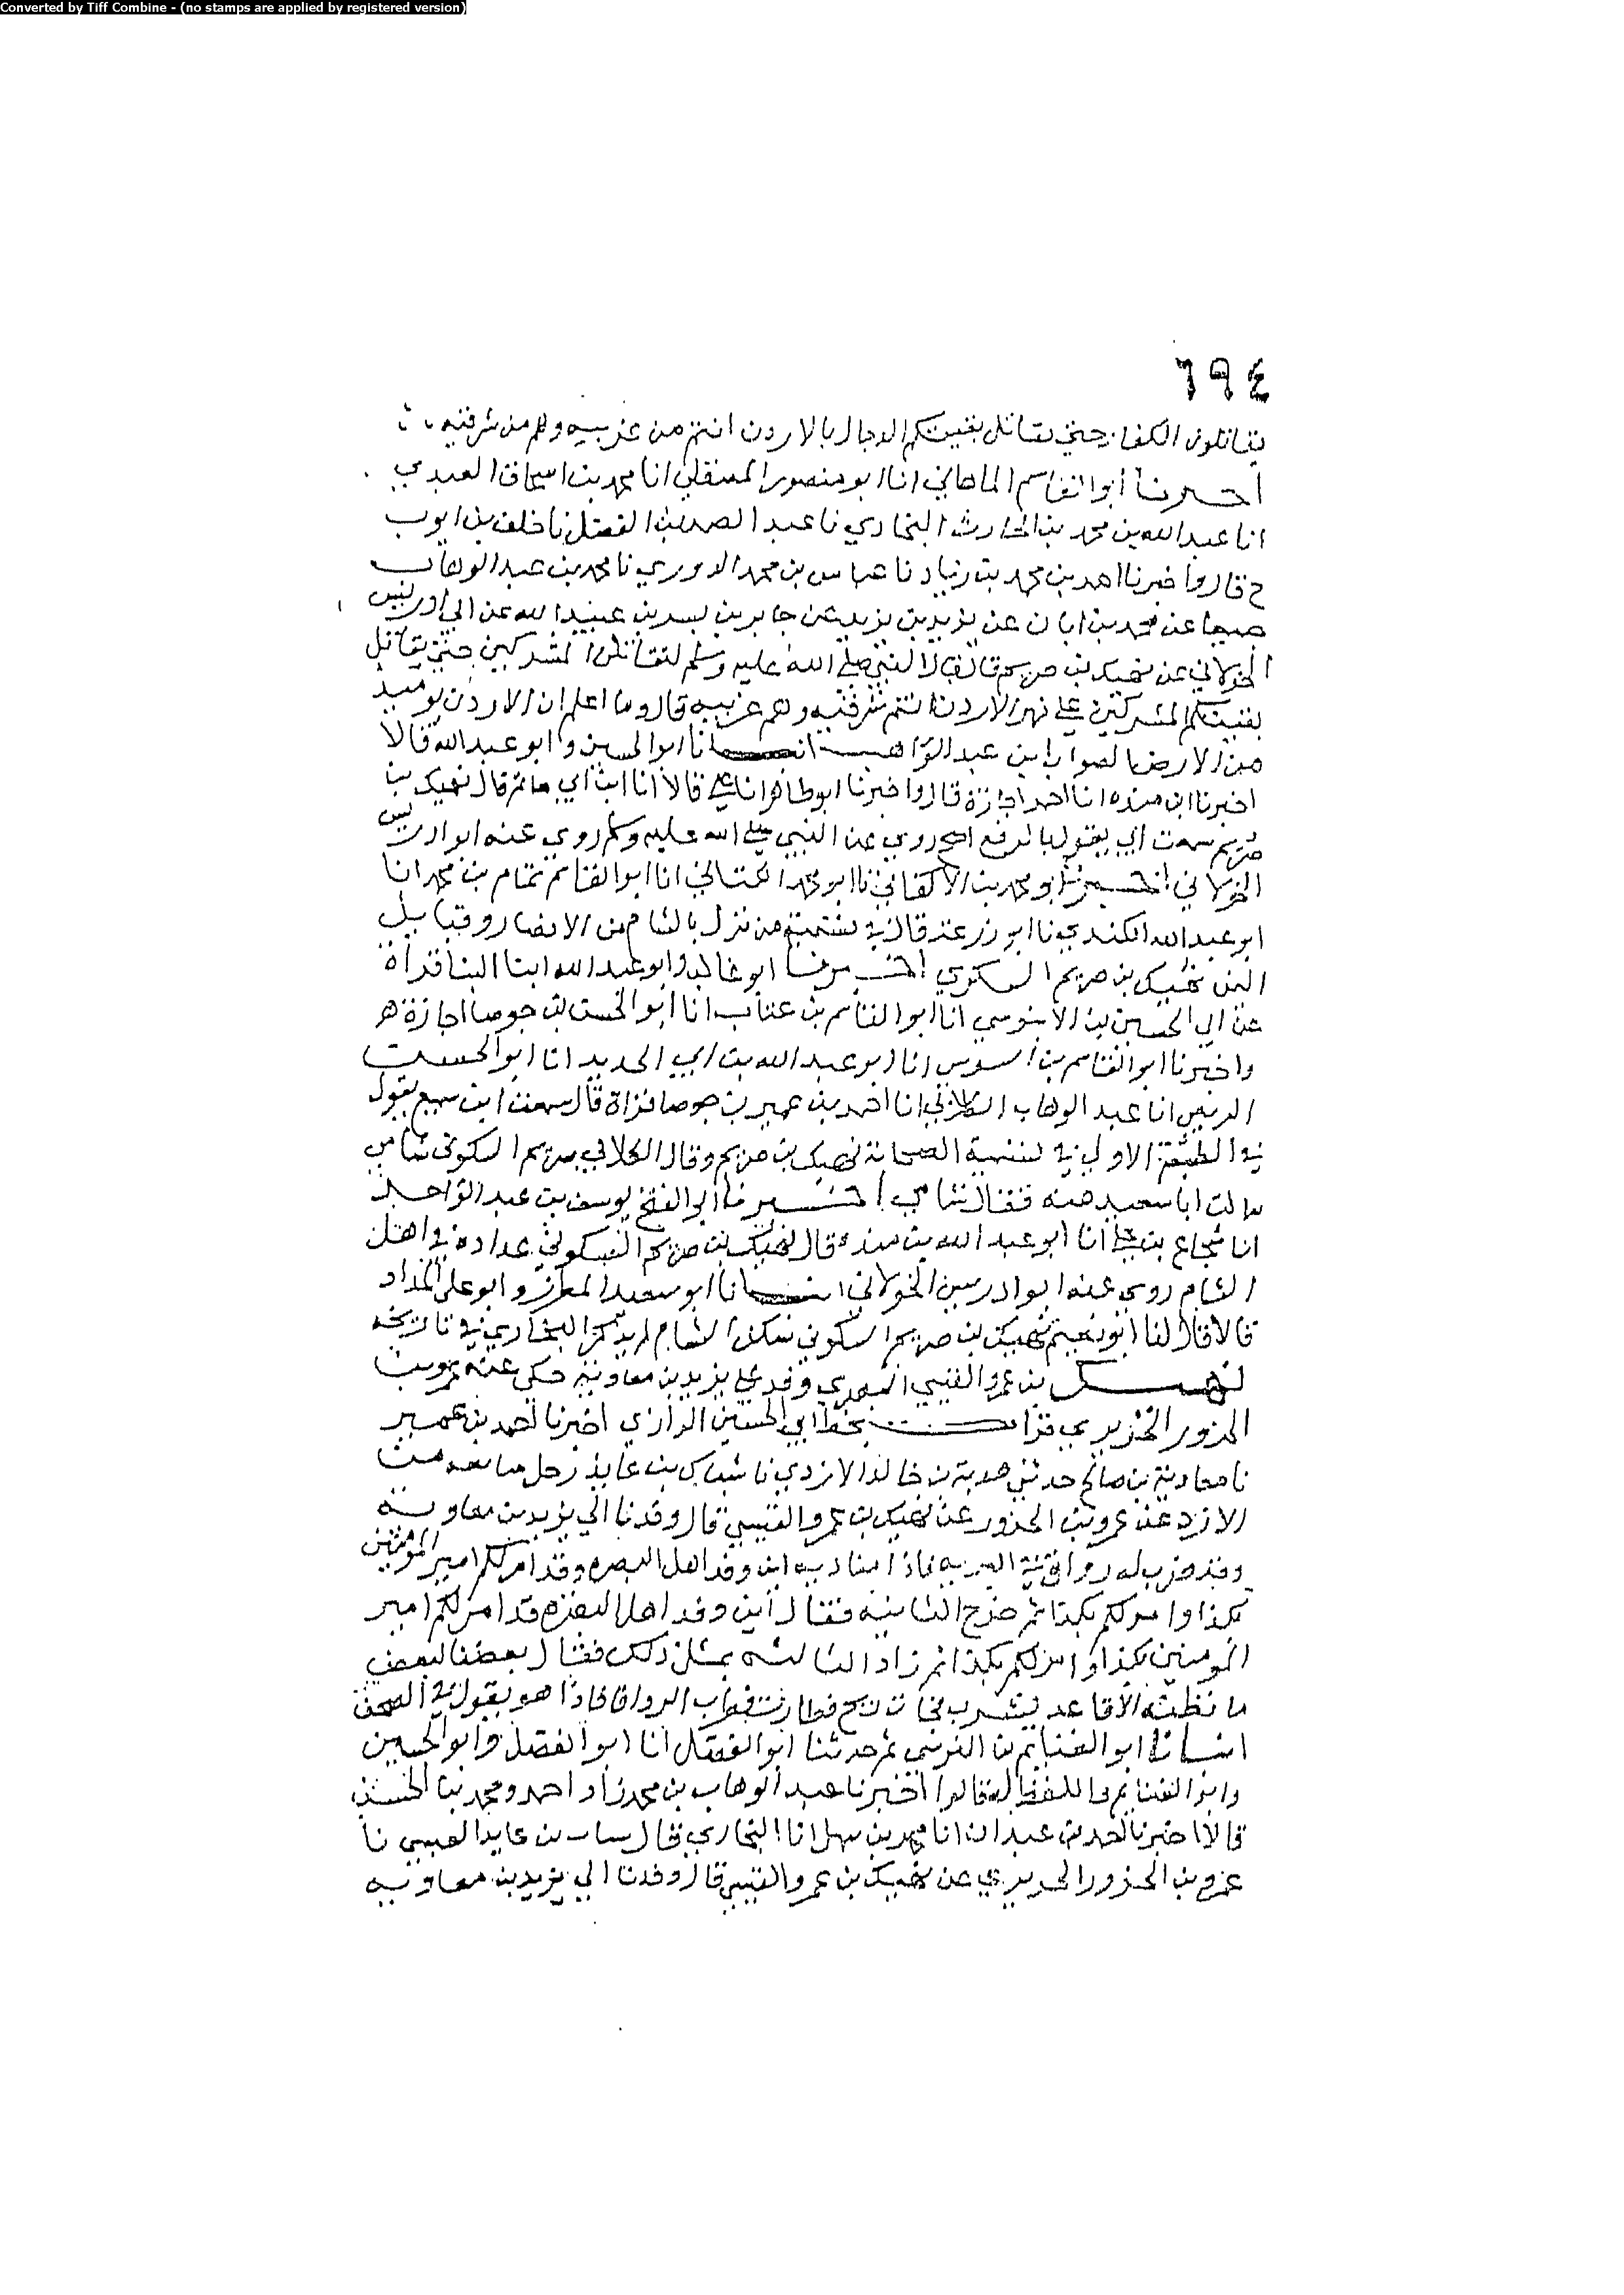 Converted by Tiff Combine - (no stamps are applied by registered version)
٦٩٤
يقاتلون الكفار حتى يقاتل بقيتكم الدجال بالاردن انتم من غربيه وهم من شرقيه
اخبرنا أبوا لقاسم الماهاني انا ابو منصور المصقلي انا محمد بن اسحاق العبدي
انا عبد الله بن محمد بن الحارث البخاري نا عبد الصمد بن الفضل نا خلف بن ايوب
ح قال واخبرنا احمد بن محمد بن زياد نا عباس بن محمد الدوري نا محمد بن عبد الوهاب
جميعا عن محمد بن ابان عن يزيد بن يزيد عن جابر بن بسر بن عبيد الله عن ابي ادريس
الخولاني عن نهيك بن صريم قال قال النبي صلى الله عليه وسلم لتقاتلن المشركين حتى يقاتل
بقيتكم المشركين على نهر الاردن انتم شرقيه وهم غربيه قال وما اعلم ان الاردن يوميذ
من الارض الصواب ابن عبد الواهب انبانا ابو الحسين وابو عبد الله قالا
اخبرنا ابن منده انا احمد اجازة قال واخبرنا ابو طاهر انا علي قالا انا ابن ابي حاتم قال نهيك بن
صريم سمعت ابي يقول بالرفع روي عن النبي صلى الله عليه وسلم روى عنه ابو ادريس
الخولاني اخبرنا ابو محمد بن الاكفاني نا ابو محمد الكتاني انا ابو القاسم تمام بن محمد انا
ابو عبد الله الكندي نا ابو زرعة قال في تسمية من نزل بالشام من الانصار وقبايل
اليمن نهيك بن صريم السكوني اخبرنا ابو غالب وابو عبد الله ابنا البنا قراة
عن ابي الحسين بن الابنوسي انا ابو القاسم بن عتاب انا ابو الحسن بن جوصا اجازة ح
واخبرنا ابو القاسم بن السوسي انا ابو عبد الله بن ابي الحديد انا ابو الحسن
الربعي انا عبد الوهاب الكلابي انا احمد بن عمير بن جوصا قراة قال سمعت ابن سميع يقول
في الطبقة الاولى في تسمية الصحابة نهيك بن صريم وقال الكلابي صريم السكوني شامي
سالت ابا سعيد عنه فقال شامي اخبرنا ابو الفتح يوسف بن عبد الواحد
انا شجاع بن علي انا ابو عبد الله بن منده قال نهيك بن صريم السكوني عداده في اهل
الشام روى عنه ابو ادريس الخولاني انبانا ابو سعد المطرز وابو علي الحداد
قالا قال لنا ابو نعيم نهيك بن صريم السكوني سكن الشام لم يذكره البخاري في تاريخه
نهيك بن عمرو القيسي البصري وفد على يزيد بن معاوية حكى عنه عمرو بن
الحزور الحريري قرات بخط ابي الحسين الرازي اخبرنا احمد بن عمير
نا معاوية بن صالح حدثني هدبة بن خالد الازدي نا شباك بن عايذ رجل من
الازد عن عمرو بن الحزور عن نهيك بن عمرو القيسي قال وفدنا الى يزيد بن معاوية
وقد ضرب له رواق في البرية فاذا منادي اين وفد اهل البصرة وقد امر لكم امير المؤمنين
بكذا وامر لكم بكذا ثم خرج الثانية فقال أين وفد اهل البصرة قد امر لكم امير
المومنين بكذا وامر لكم بكذا ثم زاد الثالثة بمثل ذلك فقال بعضنا لبعض
ما نظنه الا قاعد يشرب فجات ريح فطارت بباب الرواق فاذا هو يقرا في المصحف
انبانا ابو الغنايم بن النرسي ثم حدثنا ابو الفضل انا ابو الفضل وابو الحسين
وابو الغنايم واللفظ له قالوا اخبرنا عبد الوهاب بن محمد زاد احمد ومحمد بن الحسن
قالا اخبرنا احمد بن عبدان انا محمد بن سهل انا البخاري قال بن عايذ العبسي نا
عمرو بن الحزور الحريري عن نهيك بن عمرو القيسي قال وفدنا الى يزيد بن معاوية